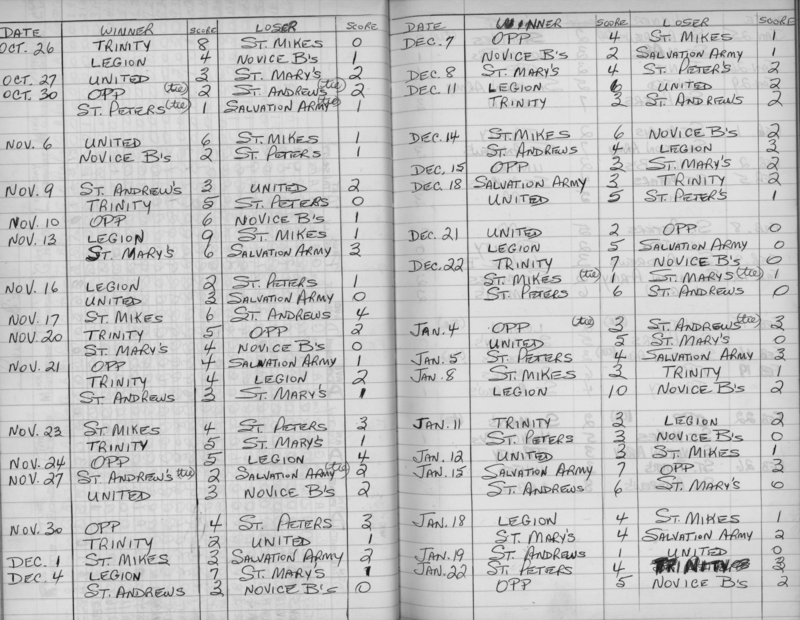 DATE WINNER SCORE LOSER SCORE
OCT. 26 TRINITY 8 ST. MIKES 0
LEGION 4 NOVICE B'S 1
OCT. 27 UNITED 3 ST. MARY'S 2
OCT. 30 OPP (tie) 2 ST. ANDREWS (tie) 2
ST. PETERS (tie) 1 SALVATION ARMY (tie) 1
NOV. 6 UNITED 6 ST. MIKES 1
NOVICE B'S 2 ST. PETERS 1
NOV. 9 ST. ANDREW'S 3 UNITED 2
TRINITY 5 ST. PETERS 0
NOV. 10 OPP 6 NOVICE B'S 1
NOV. 13 LEGION 9 ST. MIKES 1
ST. MARY'S 6 SALVATION ARMY 3
NOV. 16 LEGION 2 ST. PETERS 1
UNITED 3 SALVATION ARMY 0
NOV. 17 ST. MIKES 6 ST. ANDREWS 4
NOV. 20 TRINITY 5 OPP 2
ST. MARY'S 4 NOVICE B'S 0
NOV. 21 OPP 4 SALVATION ARMY 1
TRINITY 4 LEGION 2
ST. ANDREWS 3 ST. MARY'S 1
NOV. 23 ST. MIKES 4 ST. PETERS 3
TRINITY 5 ST. MARY'S 1
NOV. 24 OPP 5 LEGION 4
NOV. 27 ST. ANDREW'S (tie) 2 SALVATION ARMY (tie) 2
UNITED 3 NOVICE B'S 2
NOV. 30 OPP 4 ST. PETERS 3
TRINITY 2 UNITED 1
DEC. 1 ST. MIKES 3 SALVATION ARMY 2
DEC. 4 LEGION 7 ST. MARY'S 1
ST. ANDREWS 3 NOVICE B'S 0
DATE WINNER SCORE LOSER SCORE
DEC. 7 OPP 4 ST. MIKES 1
NOVICE B'S 2 SALVATION ARMY 1
DEC. 8 ST. MARY'S 4 ST. PETER'S 2
DEC. 11 LEGION 6 UNITED 2
TRINITY 3 ST. ANDREWS 2
DEC. 14 ST. MIKES 6 NOVICE B'S 2
ST. ANDREWS 4 LEGION 3
DEC. 15 OPP 3 ST. MARY'S 2
DEC. 18 SALVATION ARMY 3 TRINITY 2
UNITED 5 ST. PETER'S 1
DEC. 21 UNITED 2 OPP 0
LEGION 5 SALVATION ARMY 0
DEC. 22 TRINITY 7 NOVICE B'S 0
ST. MIKES (tie) 1 ST. MARYS (tie) 1
ST. PETERS 6 ST. ANDREWS 0
JAN. 4 OPP (tie) 3 ST. ANDREWS (tie) 3
UNITED 5 ST. MARY'S 0
JAN. 5 ST. PETERS 4 SALVATION ARMY 3
JAN. 8 ST. MIKES 3 TRINITY 1
LEGION 10 NOVICE B'S 2
JAN. 11 TRINITY 3 LEGION 2
ST. PETERS 3 NOVICE B'S 0
JAN. 12 UNITED 3 ST. MIKES 1
JAN. 15 SALVATION ARMY 7 OPP 3
ST. ANDREWS 6 ST. MARY'S 0
JAN. 18 LEGION 4 ST. MIKES 1
ST. MARY'S 4 SALVATION ARMY 2
JAN. 19 ST. ANDREWS 1 UNITED 0
JAN. 22 ST. PETERS 4 TRINITY 3
OPP 5 NOVICE B'S 2